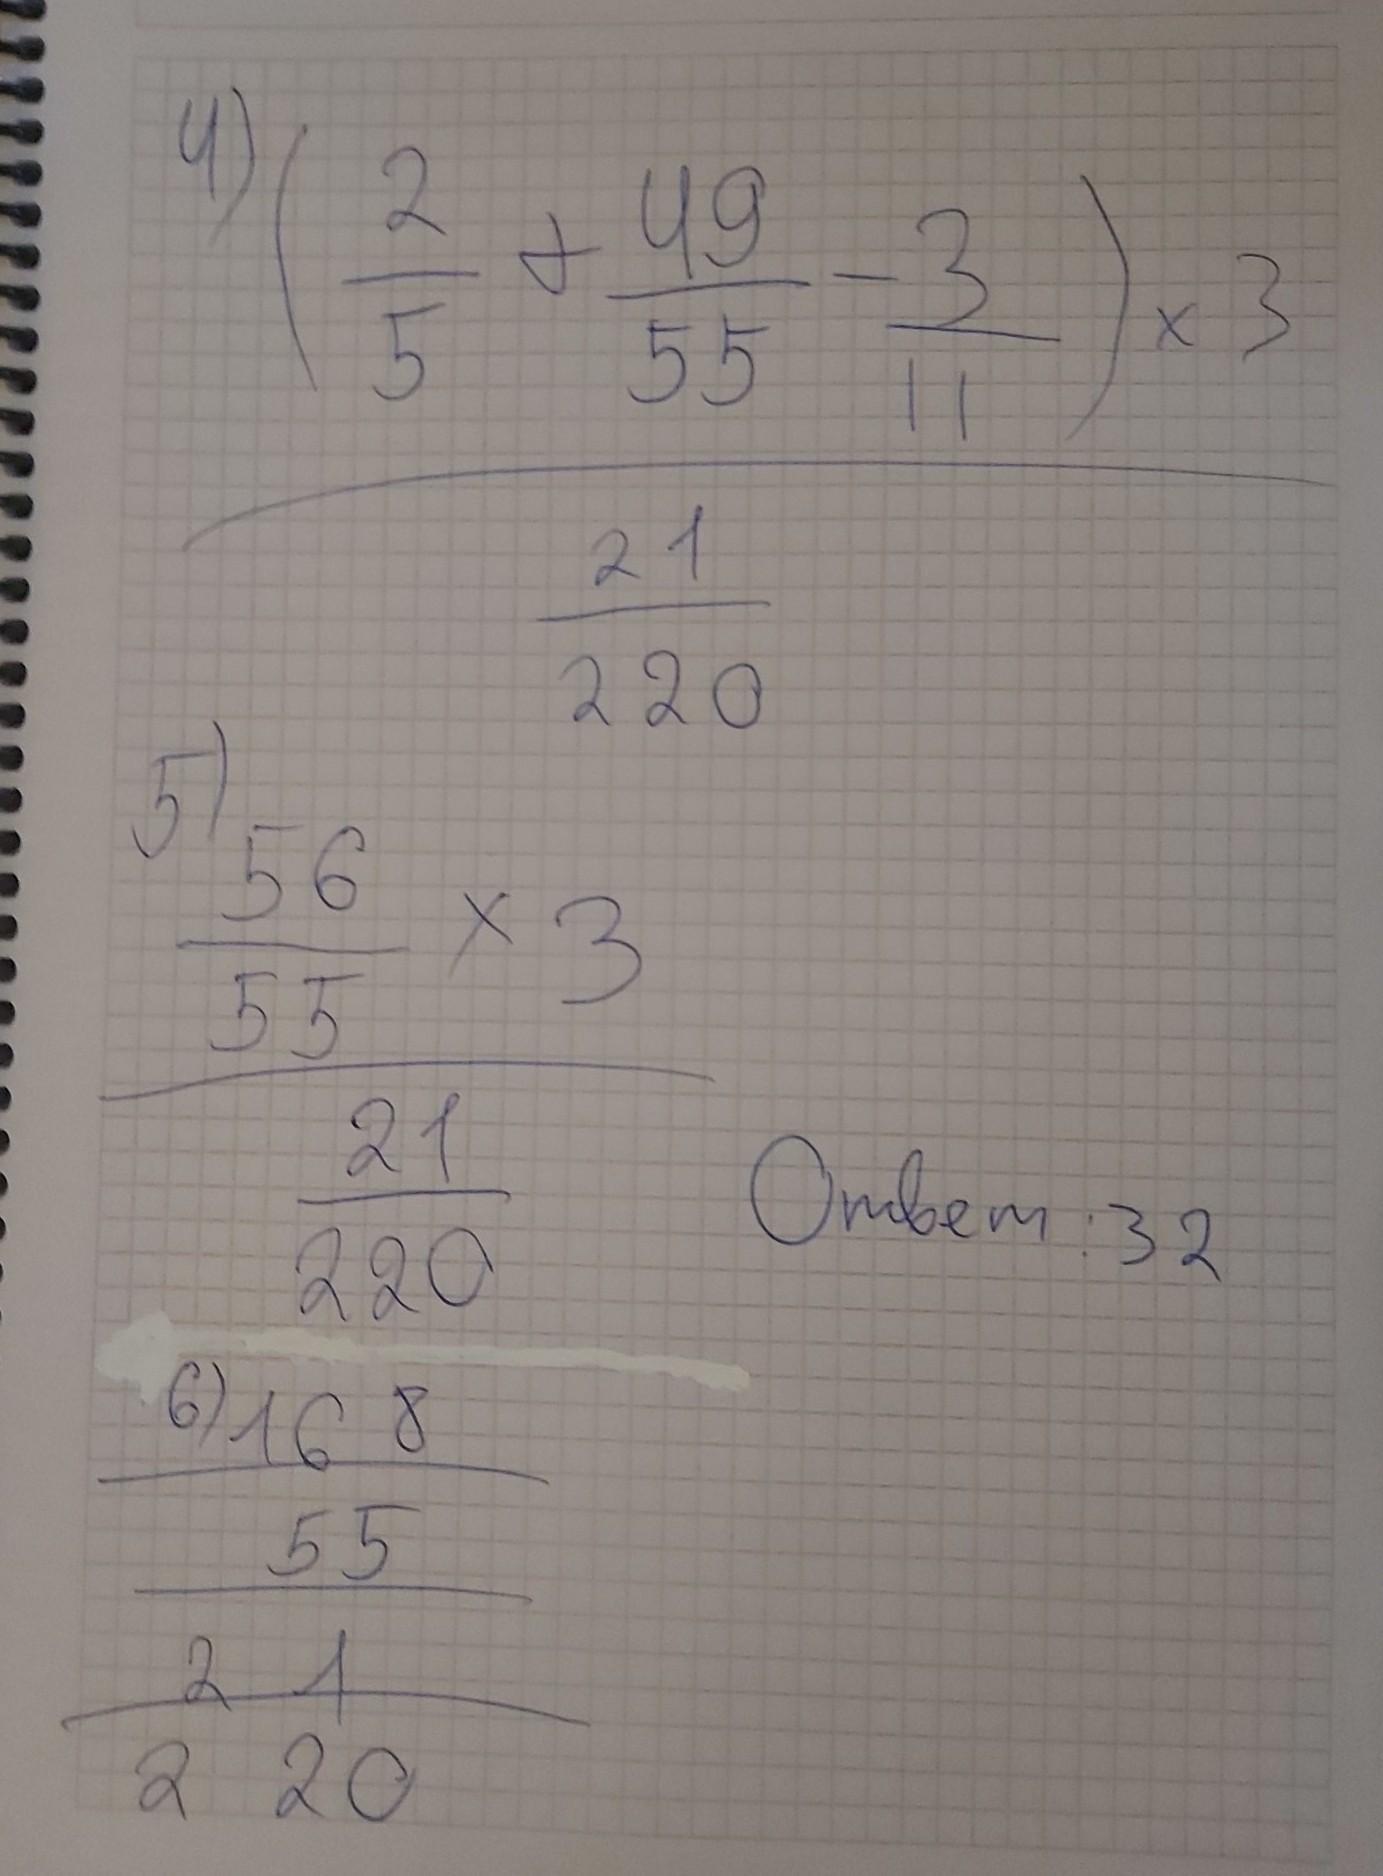 4) ( 2/5 + 49/55 - 3/11 ) x 3
21
220
5)
56/55 x 3
21
220
Ответ: 32
6) 168
55
21
220